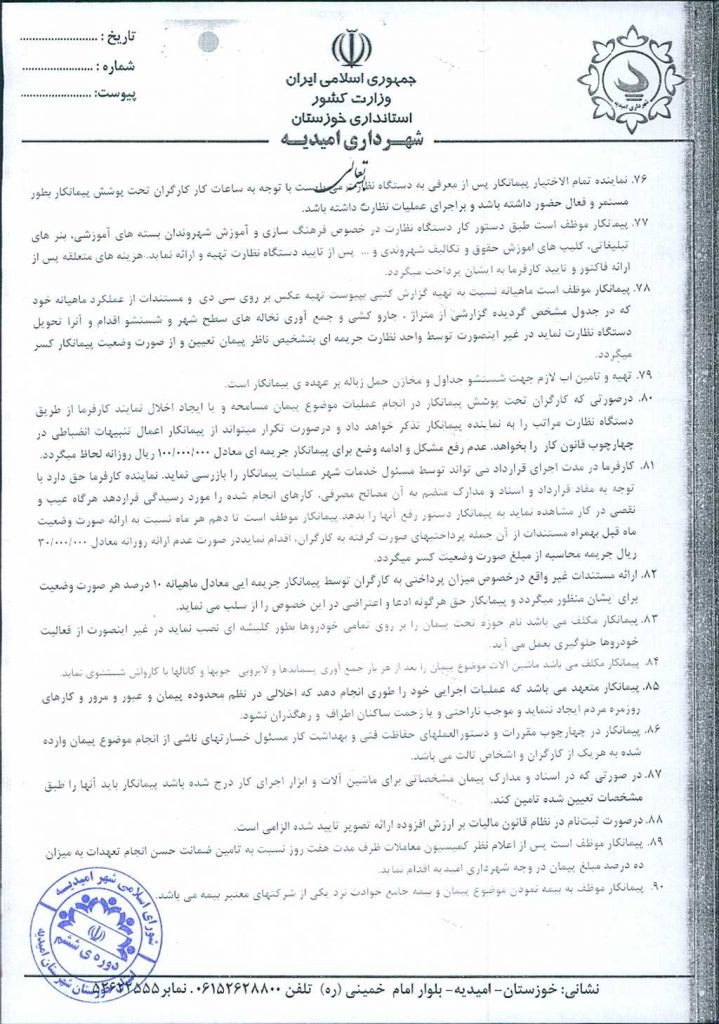 تاریخ : ........................
شماره : ........................
پیوست: ........................
جمهوری اسلامی ایران
وزارت کشور
استانداری خوزستان
شهرداری امیدیه
شهرداری امیدیه
بسمه تعالی
۷۶. نماینده تمام الاختیار پیمانکار پس از معرفی به دستگاه نظارت می بایست با توجه به ساعات کار کارگران تحت پوشش پیمانکار بطور
مستمر و فعال حضور داشته باشد و براجرای عملیات نظارت داشته باشد.
۷۷. پیمانکار موظف است طبق دستور کار دستگاه نظارت در خصوص فرهنگ سازی و آموزش شهروندان بسته های آموزشی، بنر های
تبلیغاتی، کلیپ های اموزش حقوق و تکالیف شهروندی و ... پس از تایید دستگاه نظارت تهیه و ارائه نماید. هزینه های متعلقه پس از
ارائه فاکتور و تایید کارفرما به ایشان پرداخت میگردد.
۷۸. پیمانکار موظف است ماهیانه نسبت به تهیه گزارش کتبی بپیوست تهیه عکس بر روی سی دی و مستندات از عملکرد ماهیانه خود
که در جدول مشخص گردیده گزارشی از متراژ ، جارو کشی و جمع آوری نخاله های سطح شهر و شستشو اقدام و آنرا تحویل
دستگاه نظارت نماید در غیر اینصورت توسط واحد نظارت جریمه ای بتشخیص ناظر پیمان تعیین و از صورت وضعیت پیمانکار کسر
میگردد.
۷۹. تهیه و تامین اب لازم جهت شستشو جداول و مخازن حمل زباله بر عهده ی پیمانکار است.
۸۰. درصورتی که کارگران تحت پوشش پیمانکار در انجام عملیات موضوع پیمان مسامحه و یا ایجاد اخلال نمایند کارفرما از طریق
دستگاه نظارت مراتب را به نماینده پیمانکار تذکر خواهد داد و درصورت تکرار میتواند از پیمانکار اعمال تنبیهات انضباطی در
چهارچوب قانون کار را بخواهد. عدم رفع مشکل و ادامه وضع برای پیمانکار جریمه ای معادل ۱۰۰/۰۰۰/۰۰۰ ریال روزانه لحاظ میگردد.
۸۱. کارفرما در مدت اجرای قرارداد می تواند توسط مسئول خدمات شهر عملیات پیمانکار را بازرسی نماید. نماینده کارفرما حق دارد با
توجه به مفاد قرارداد و اسناد و مدارک منضم به آن مصالح مصرفی، کارهای انجام شده را مورد رسیدگی قراردهد هرگاه عیب و
نقصی در کار مشاهده نماید به پیمانکار دستور رفع آنها را بدهد.پیمانکار موظف است تا دهم هر ماه نسبت به ارائه صورت وضعیت
ماه قبل بهمراه مستندات از آن جمله پرداختیهای صورت گرفته به کارگران، اقدام نمایددر صورت عدم ارائه روزانه معادل ۳۰/۰۰۰/۰۰۰
ریال جریمه محاسبه از مبلغ صورت وضعیت کسر میگردد.
۸۲. ارائه مستندات غیر واقع درخصوص میزان پرداختی به کارگران توسط پیمانکار جریمه ایی معادل ماهیانه ۱۰ درصد هر صورت وضعیت
برای یشان منظور میگردد و پیمانکار حق هرگونه ادعا و اعتراضی در این خصوص را از سلب می نماید.
۸۳. پیمانکار مکلف می باشد نام حوزه تحت پیمان را بر روی تمامی خودروها بطور کلیشه ای نصب نماید در غیر اینصورت از فعالیت
خودروها جلوگیری بعمل می آید.
۸۴. پیمانکار مکلف می باشد ماشین آلات موضوع پیمان را بعد از هر بار جمع آوری پسماندها و لایروبی جویها و کانالها با کارواش شستشوی نماید.
۸۵. پیمانکار متعهد می باشد که عملیات اجرایی خود را طوری انجام دهد که اخلالی در نظم محدوده پیمان و عبور و مرور و کارهای
روزمره مردم ایجاد ننماید و موجب ناراحتی و یا زحمت ساکنان اطراف و رهگذران نشود.
۸۶. پیمانکار در چهارچوب مقررات و دستورالعملهای حفاظت فنی و بهداشت کار مسئول خسارتهای ناشی از انجام موضوع پیمان وارده
شده به هریک از کارگران و اشخاص ثالث می باشد.
۸۷. در صورتی که در اسناد و مدارک پیمان مشخصاتی برای ماشین آلات و ابزار اجرای کار درج شده باشد پیمانکار باید آنها را طبق
مشخصات تعیین شده تامین کند.
۸۸. درصورت ثبت‌نام در نظام قانون مالیات بر ارزش افزوده ارائه تصویر تایید شده الزامی است.
۸۹. پیمانکار موظف است پس از اعلام نظر کمیسیون معاملات ظرف مدت هفت روز نسبت به تامین ضمانت حسن انجام تعهدات به میزان
ده درصد مبلغ پیمان در وجه شهرداری امیدیه اقدام نماید.
۹۰. پیمانکار موظف به بیمه نمودن موضوع پیمان و بیمه جامع حوادث نزد یکی از شرکتهای معتبر بیمه می باشد.
شورای اسلامی شهر امیدیه
دوره ی ششم
استان خوزستان شهرستان امیدیه
نشانی: خوزستان- امیدیه- بلوار امام خمینی (ره) تلفن ۰۶۱۵۲۶۲۸۸۰۰ . نمابر ۵۲۶۲۲۵۵۵